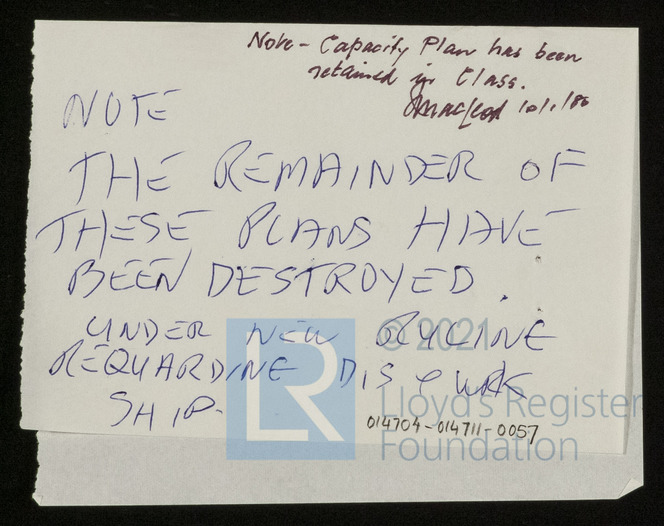 Note - Capacity Plan has been
retained in Class.
Macleod 10/1/86
NOTE
THE REMAINDER OF
THESE PLANS HAVE
BEEN DESTROYED.
UNDER NEW RULINE
REQUARDINE DIS & WRK
SHIP.
© 2021
LR
Lloyd's Register
Foundation
014704-014711-0057